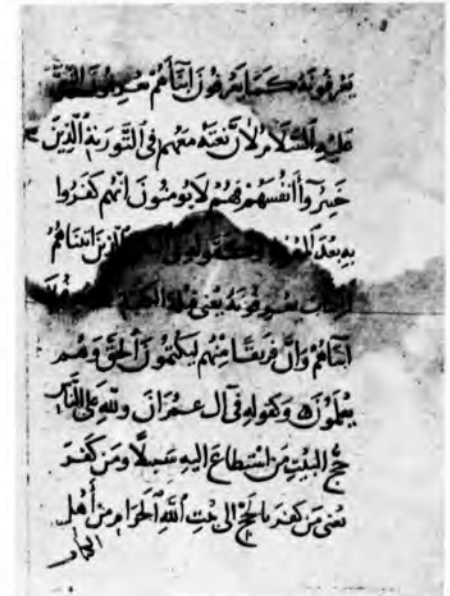 يعرفونه كما يعرفون ابناهم يعرفون النبى
عليه السلام لان نعته معهم فى التورىة الذين
خسروا انفسهم فهم لا يومنون انهم كفروا
به بعد المعرفة الذين اتيناهم
الكتاب يعرفونه يعنى قبلة الكعبة
ابناهم وان فريقا منهم ليكتمون الحق وهم
يعلمون وكقوله فى ال عمران ولله على الناس
حج البيت من استطاع اليه سبيلا ومن كفر
يعنى من كفر بالحج الى بيت الله الحرام من أهل